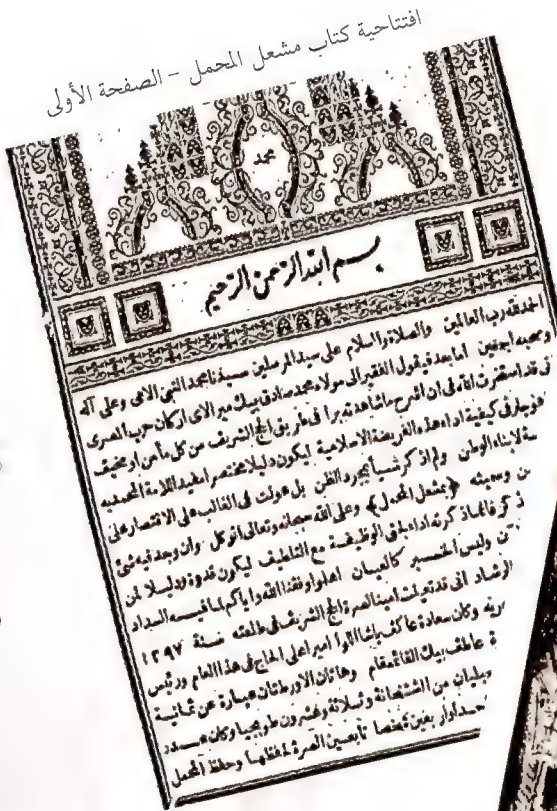 افتتاحية كتاب مشعل المحمل – الصفحة الأولى
محمد
بسم الله الرحمن الرحيم
الحمد لله رب العالمين والصلاة والسلام على سيد المرسلين سيدنا محمد النبي الامى وعلى آله
وصحبه اجمعين اما بعد فيقول الفقير الى مولاه محمد صادق بيك مير الاى اركان حرب المصرى
قد استخرت الله فى ان اشرح ما شاهدته برا فى طريق الحج الشريف من كل مأمن او مخيف
فى كيفية اداء هذه الفريضة الاسلامية ليكون دليلا مختصرا مفيدا للامة المحمديه
لابناء الوطن ولم اذكر شيأ بمجرد الظن بل عولت فى الغالب على الاقتصار على
وسميته ﴿بمشعل المحمل﴾ وعلى الله سبحانه وتعالى اتوكل وان وجد فيه شئ
ذكر فانما ذكرته اداء لحق الوظيفة مع التلطيف ليكون قدوة ودليلا لمن
وليس الخبر كالعيان اعلموا وفقنا الله واياكم لما فيه السداد
الرشاد انى قد تعينت امينا لصرة الحج الشريف فى طلعته سنة ١٢٩٧
وكان سعادة عاكف باشا اللوا اميرا على الحاج فى هذا العام ورئيس
عاطف بيك القائمقام وهاتان الاورطتان عبارة عن ثمانية
من وثلاثة وعشرون طوبجيا وكان
وار بعين شخصا تابعين الصرة لحفظها وحفظ المحمل